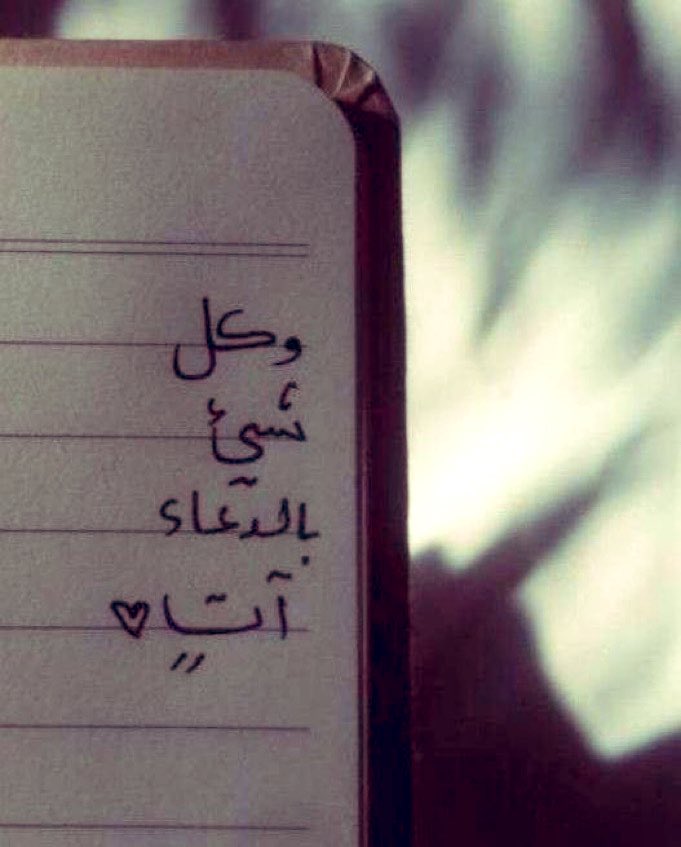 وكل
شيئ
بالدعاء
آتٍ ♥